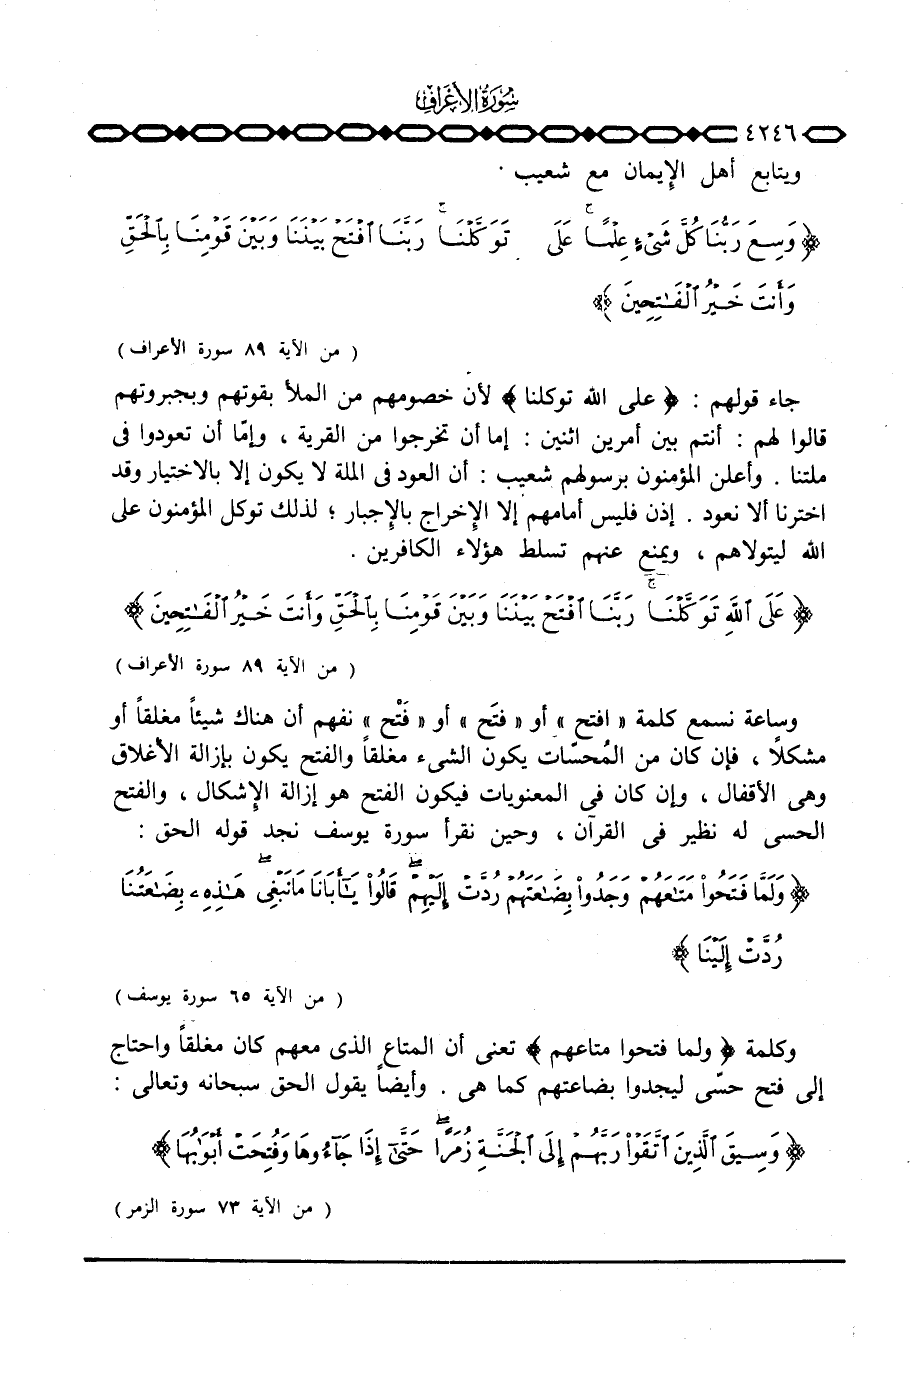 سورة الأعراف
٤٢٤٦
ويتابع أهل الإيمان مع شعيب .
﴿ وَسِعَ رَبُّنَا كُلَّ شَىْءٍ عِلْمًاۚ عَلَى تَوَكَّلْنَاۚ رَبَّنَا ٱفْتَحْ بَيْنَنَا وَبَيْنَ قَوْمِنَا بِٱلْحَقِّ
وَأَنتَ خَيْرُ ٱلْفَـٰتِحِينَ ﴾
( من الآية ٨٩ سورة الأعراف )
جاء قولهم : ﴿ على الله توكلنا ﴾ لأن خصومهم من الملأ بقوتهم وبجبروتهم
قالوا لهم : أنتم بين أمرين اثنين : إما أن تخرجوا من القرية ، وإمّا أن تعودوا فى
ملتنا . وأعلن المؤمنون برسولهم شعيب : أن العود فى الملة لا يكون إلا بالاختيار وقد
اخترنا ألا نعود . إذن فليس أمامهم إلا الإخراج بالإجبار ؛ لذلك توكل المؤمنون على
الله ليتولاهم ، ويمنع عنهم تسلط هؤلاء الكافرين .
﴿ عَلَى ٱللَّهِ تَوَكَّلْنَاۚ رَبَّنَا ٱفْتَحْ بَيْنَنَا وَبَيْنَ قَوْمِنَا بِٱلْحَقِّ وَأَنتَ خَيْرُ ٱلْفَـٰتِحِينَ ﴾
( من الآية ٨٩ سورة الأعراف )
وساعة نسمع كلمة « افتح » أو « فتَح » أو « فَتْح » نفهم أن هناك شيئاً مغلقاً أو
مشكلًا ، فإن كان من المُحسّات يكون الشىء مغلقاً والفتح يكون بإزالة الأغلاق
وهى الأقفال ، وإن كان فى المعنويات فيكون الفتح هو إزالة الإشكال ، والفتح
الحسى له نظير فى القرآن ، وحين نقرأ سورة يوسف نجد قوله الحق :
﴿ وَلَمَّا فَتَحُوا۟ مَتَـٰعَهُمْ وَجَدُوا۟ بِضَـٰعَتَهُمْ رُدَّتْ إِلَيْهِمْۖ قَالُوا۟ يَـٰٓأَبَانَا مَا نَبْغِىۖ هَـٰذِهِۦ بِضَـٰعَتُنَا
رُدَّتْ إِلَيْنَا ﴾
( من الآية ٦٥ سورة يوسف )
وكلمة ﴿ ولما فتحوا متاعهم ﴾ تعنى أن المتاع الذى معهم كان مغلقاً واحتاج
إلى فتح حسّى ليجدوا بضاعتهم كما هى . وأيضاً يقول الحق سبحانه وتعالى :
﴿ وَسِيقَ ٱلَّذِينَ ٱتَّقَوْا۟ رَبَّهُمْ إِلَى ٱلْجَنَّةِ زُمَرًاۖ حَتَّىٰٓ إِذَا جَآءُوهَا وَفُتِحَتْ أَبْوَٰبُهَا ﴾
( من الآية ٧٣ سورة الزمر )